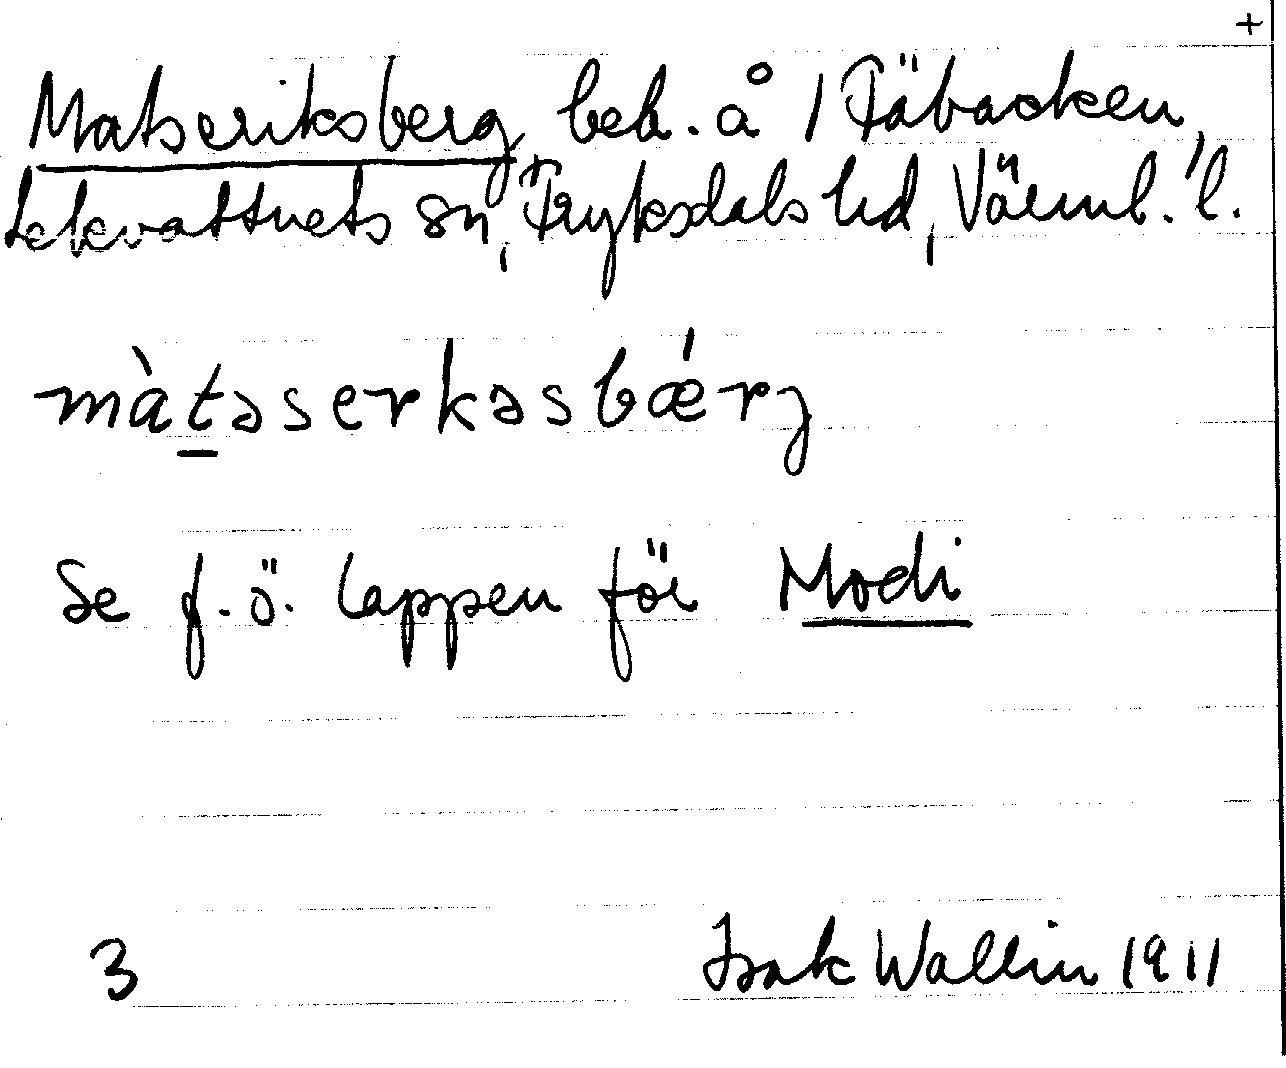 +
Matseriksberg, beb. å 1 Fäbacken,
Lekvattnets sn, Fryksdals hd, Värml. l.
màtəserkəsbǽrj
Se f.ö. lappen för Modi
3 Isak Wallin 1911